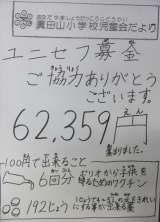 眞田山小学校児童会だより
ユニセフ募金
ご協力ありがとう
ございます。
62,359円
集まりました。
100円で出来ること
6回分
ポリオから子供を
守るためのワクチン
192じょう